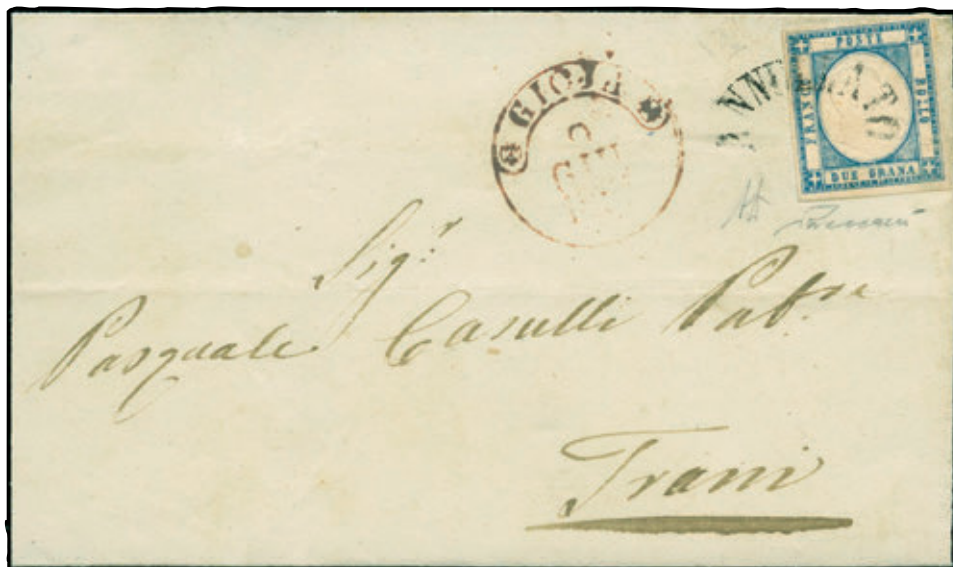 GIOJA
2
GIU
ANNULLATO
FRANCO
POSTE
BOLLO
DUE GRANA
Sig.r
Pasquale Casulli Pab.re
Trani